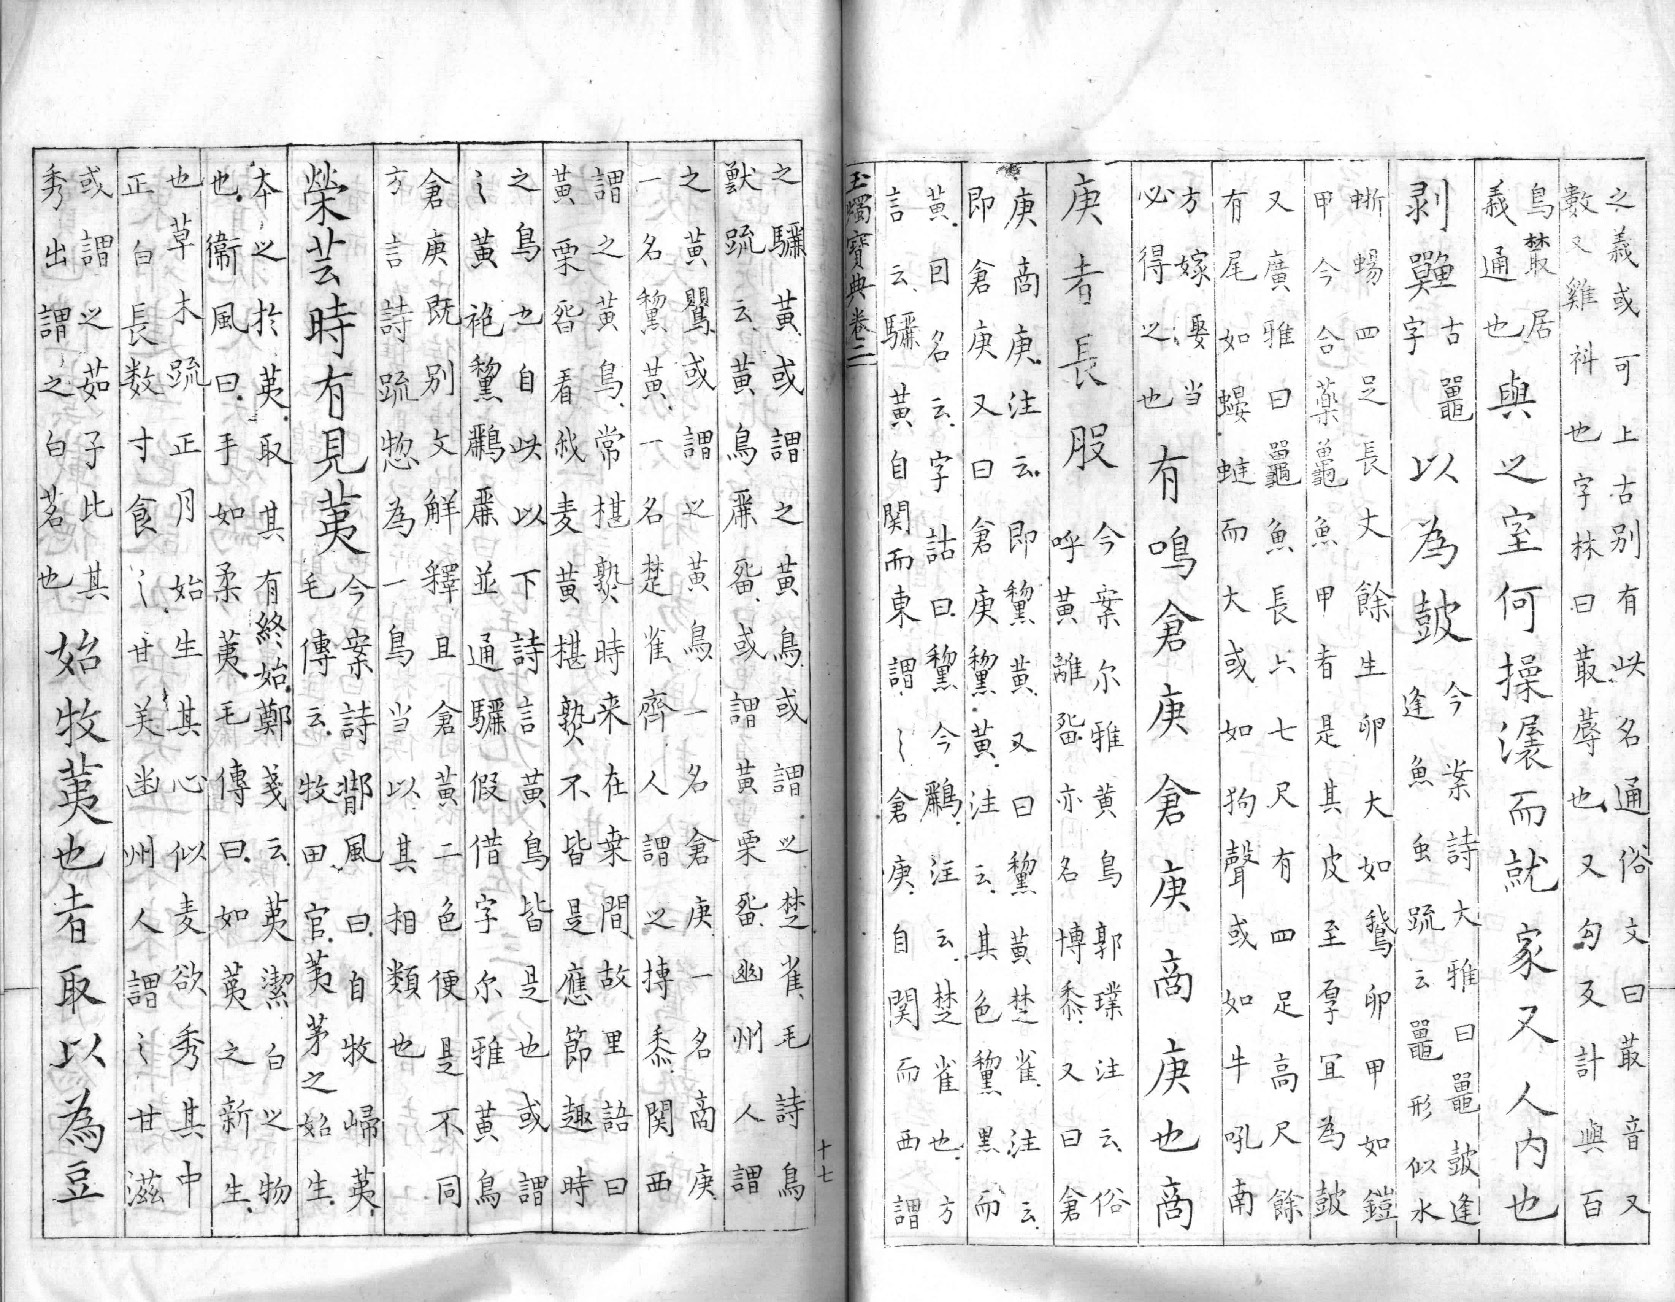 之義或可上古別有此名通俗文曰菆音又
數又雞衻也字林曰菆蓐也又囪反計與百
鳥藂居
義通也與之室何操濕而就家又人內也
剥鼉字古鼉以為鼓今案詩大雅曰鼉鼓逢
逢魚虫䟽云鼉形似水
蜥蜴四足長丈餘生卵大如鵝卵甲如鎧
甲今合藥鼉魚甲者是其皮至厚宜為鼓
又廣雅曰鼉魚長六七尺有四足高尺餘
有尾如蝘蜓而大或如狗聲或如牛吼南
方嫁娶當
必得之也有鳴倉庚倉庚商庚也商
庚者長股今案尔雅黄鳥郭璞注云俗
呼黄離留亦名博黍又曰倉
庚商庚注云即黧黄又曰黧黄楚雀注云
即倉庚又曰倉庚黧黄注云其色黧黑而
黄回名云字詁曰黧今鸝注云楚雀也方
言云驪黄自関而東謂〻倉庚自関而西謂
玉燭寳典卷二
十七
之驪黄或謂之黄鳥或謂之楚雀毛詩鳥
獸䟽云黄鳥鸝畱或謂黄栗畱幽州人謂
之黄鸎或謂之黄鳥一名倉庚一名商庚
一名黧黄一名楚雀齊人謂之摶黍関西
謂之黄鳥常椹熟時来在桒間故里語曰
黄栗畱看我麦黄椹熟不皆是應節趣時
之鳥也自此以下詩言黄鳥皆是也或謂
〻黄袍黧鸝䴡並通驪假借字尔雅黄鳥
倉庚既別文解釋且倉黄二色便是不同
方言詩䟽惣為一鳥當以其相類也
榮芸時有見荑今案詩鄁風曰自牧歸荑
毛傳云牧田官荑茅之始生
本之於荑取其有終始鄭戔云荑潔白之物
也衞風曰手如柔荑毛傳曰如荑之新生
也草木䟽正月始生其心似麦欲秀其中
正白長数寸食〻甘美幽州人謂〻甘滋
或謂之茹子比其
秀出謂之白茗也始牧荑也者取以為豆